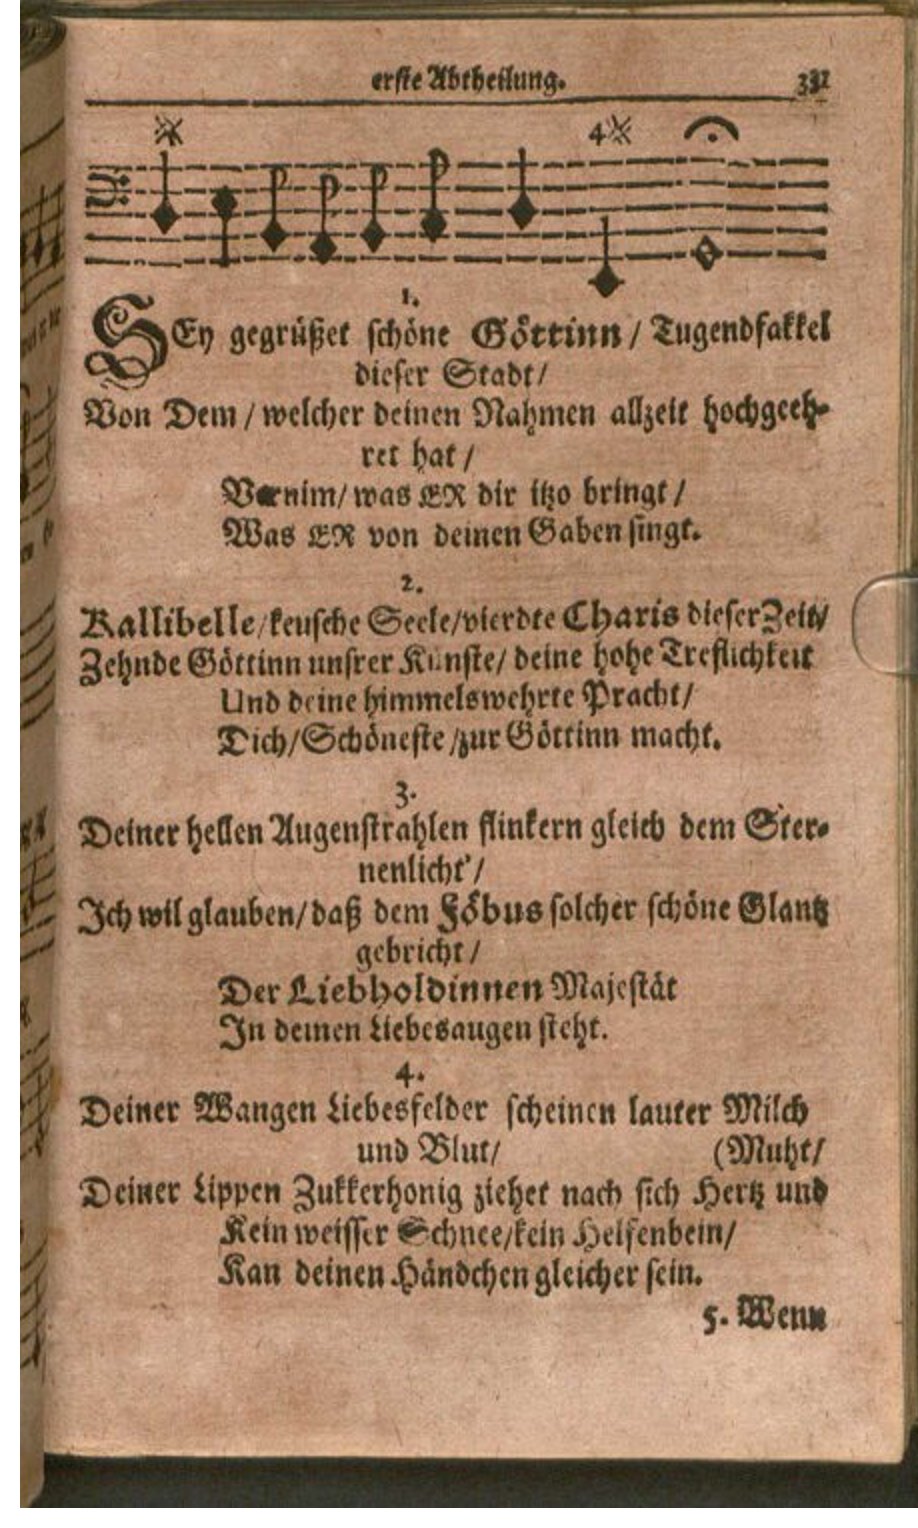 erste Abtheilung.
4
1.
SEy gegrüßet schöne Göttinn / Tugendfakkel
dieser Stadt/
Von Dem / welcher deinen Nahmen allzeit hochgeeh-
ret hat /
Vernim/ was ER dir itzo bringt /
Was ER von deinen Gaben singt.
2.
Kallibelle/keusche Seele/vierdte Charis dieser Zeit/
Zehnde Göttinn unsrer Künste/ deine hohe Treflichkeit
Und deine himmelswehrte Pracht/
Dich/Schöneste/zur Göttinn macht.
3.
Deiner hellen Augenstrahlen flinkern gleich dem Ster-
nenlicht'/
Ich wil glauben/daß dem Föbus solcher schöne Glantz
gebricht/
Der Liebholdinnen Majestät
In deinen Liebesaugen steht.
4.
Deiner Wangen Liebesfelder scheinen lauter Milch
und Blut/ (Muht/
Deiner Lippen Zukkerhonig ziehet nach sich Hertz und
Kein weisser Schnee/kein Helfenbein/
Kan deinen Händchen gleicher sein.
5. Wenn